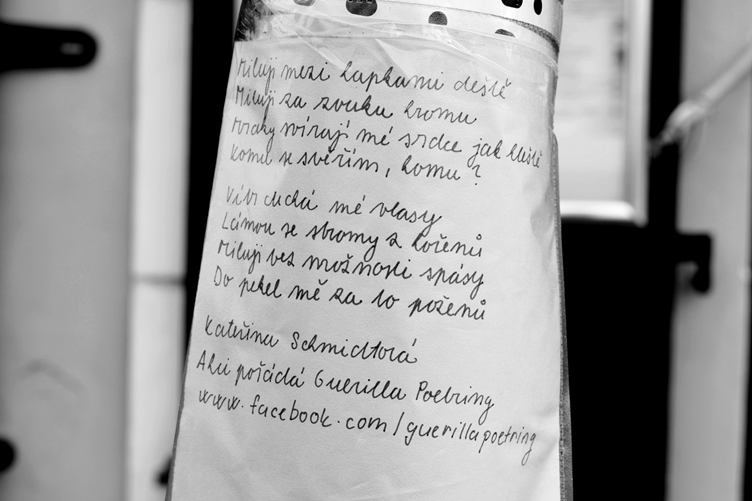 Miluji mezi kapkami deště
Miluji za zvuku hromu
Mraky svírají mé srdce jak kleště
Komu se svěřím, komu?
Vítr cuchá mé vlasy
Lámou se stromy z kořenů
Miluji bez možnosti spásy
Do pekel mě za to poženů
Kateřina Schmidtová
Akci pořádá Guerilla Poetring
www.facebook.com/guerillapoetring